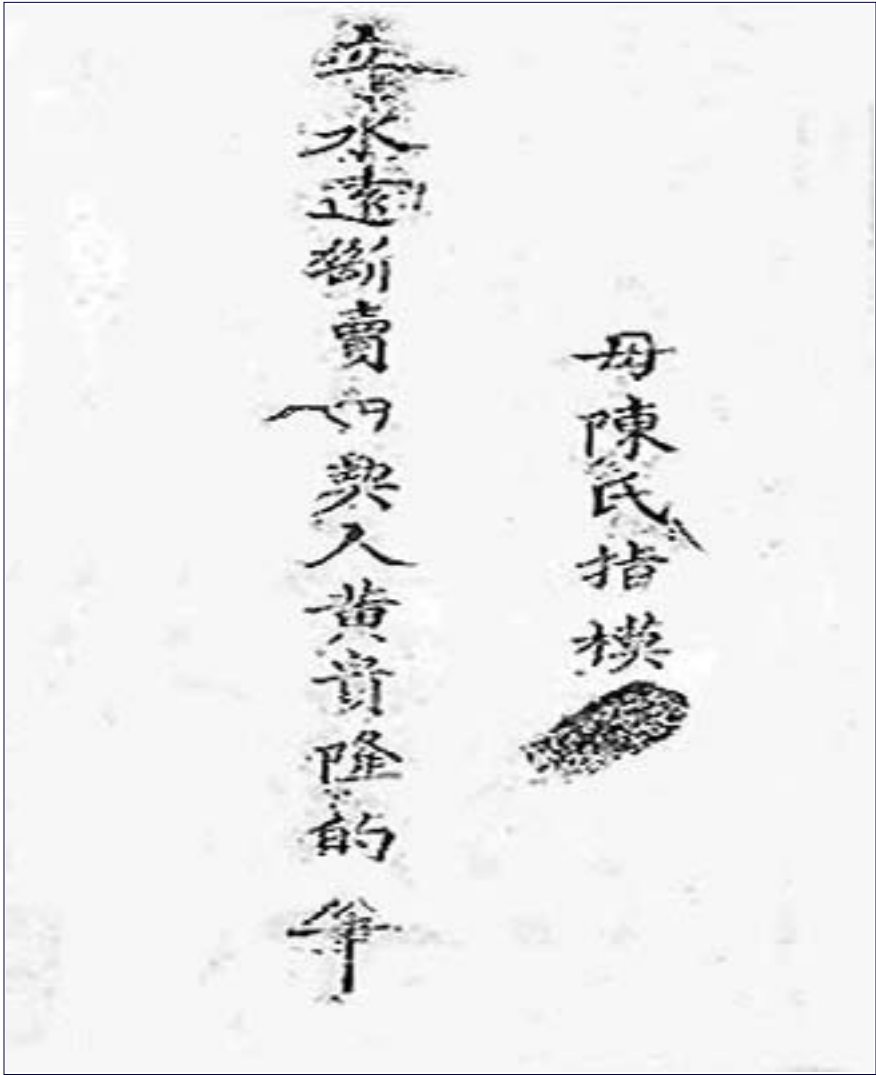 母陳氏指模
立永遠斷賣契人黃貴隆的筆